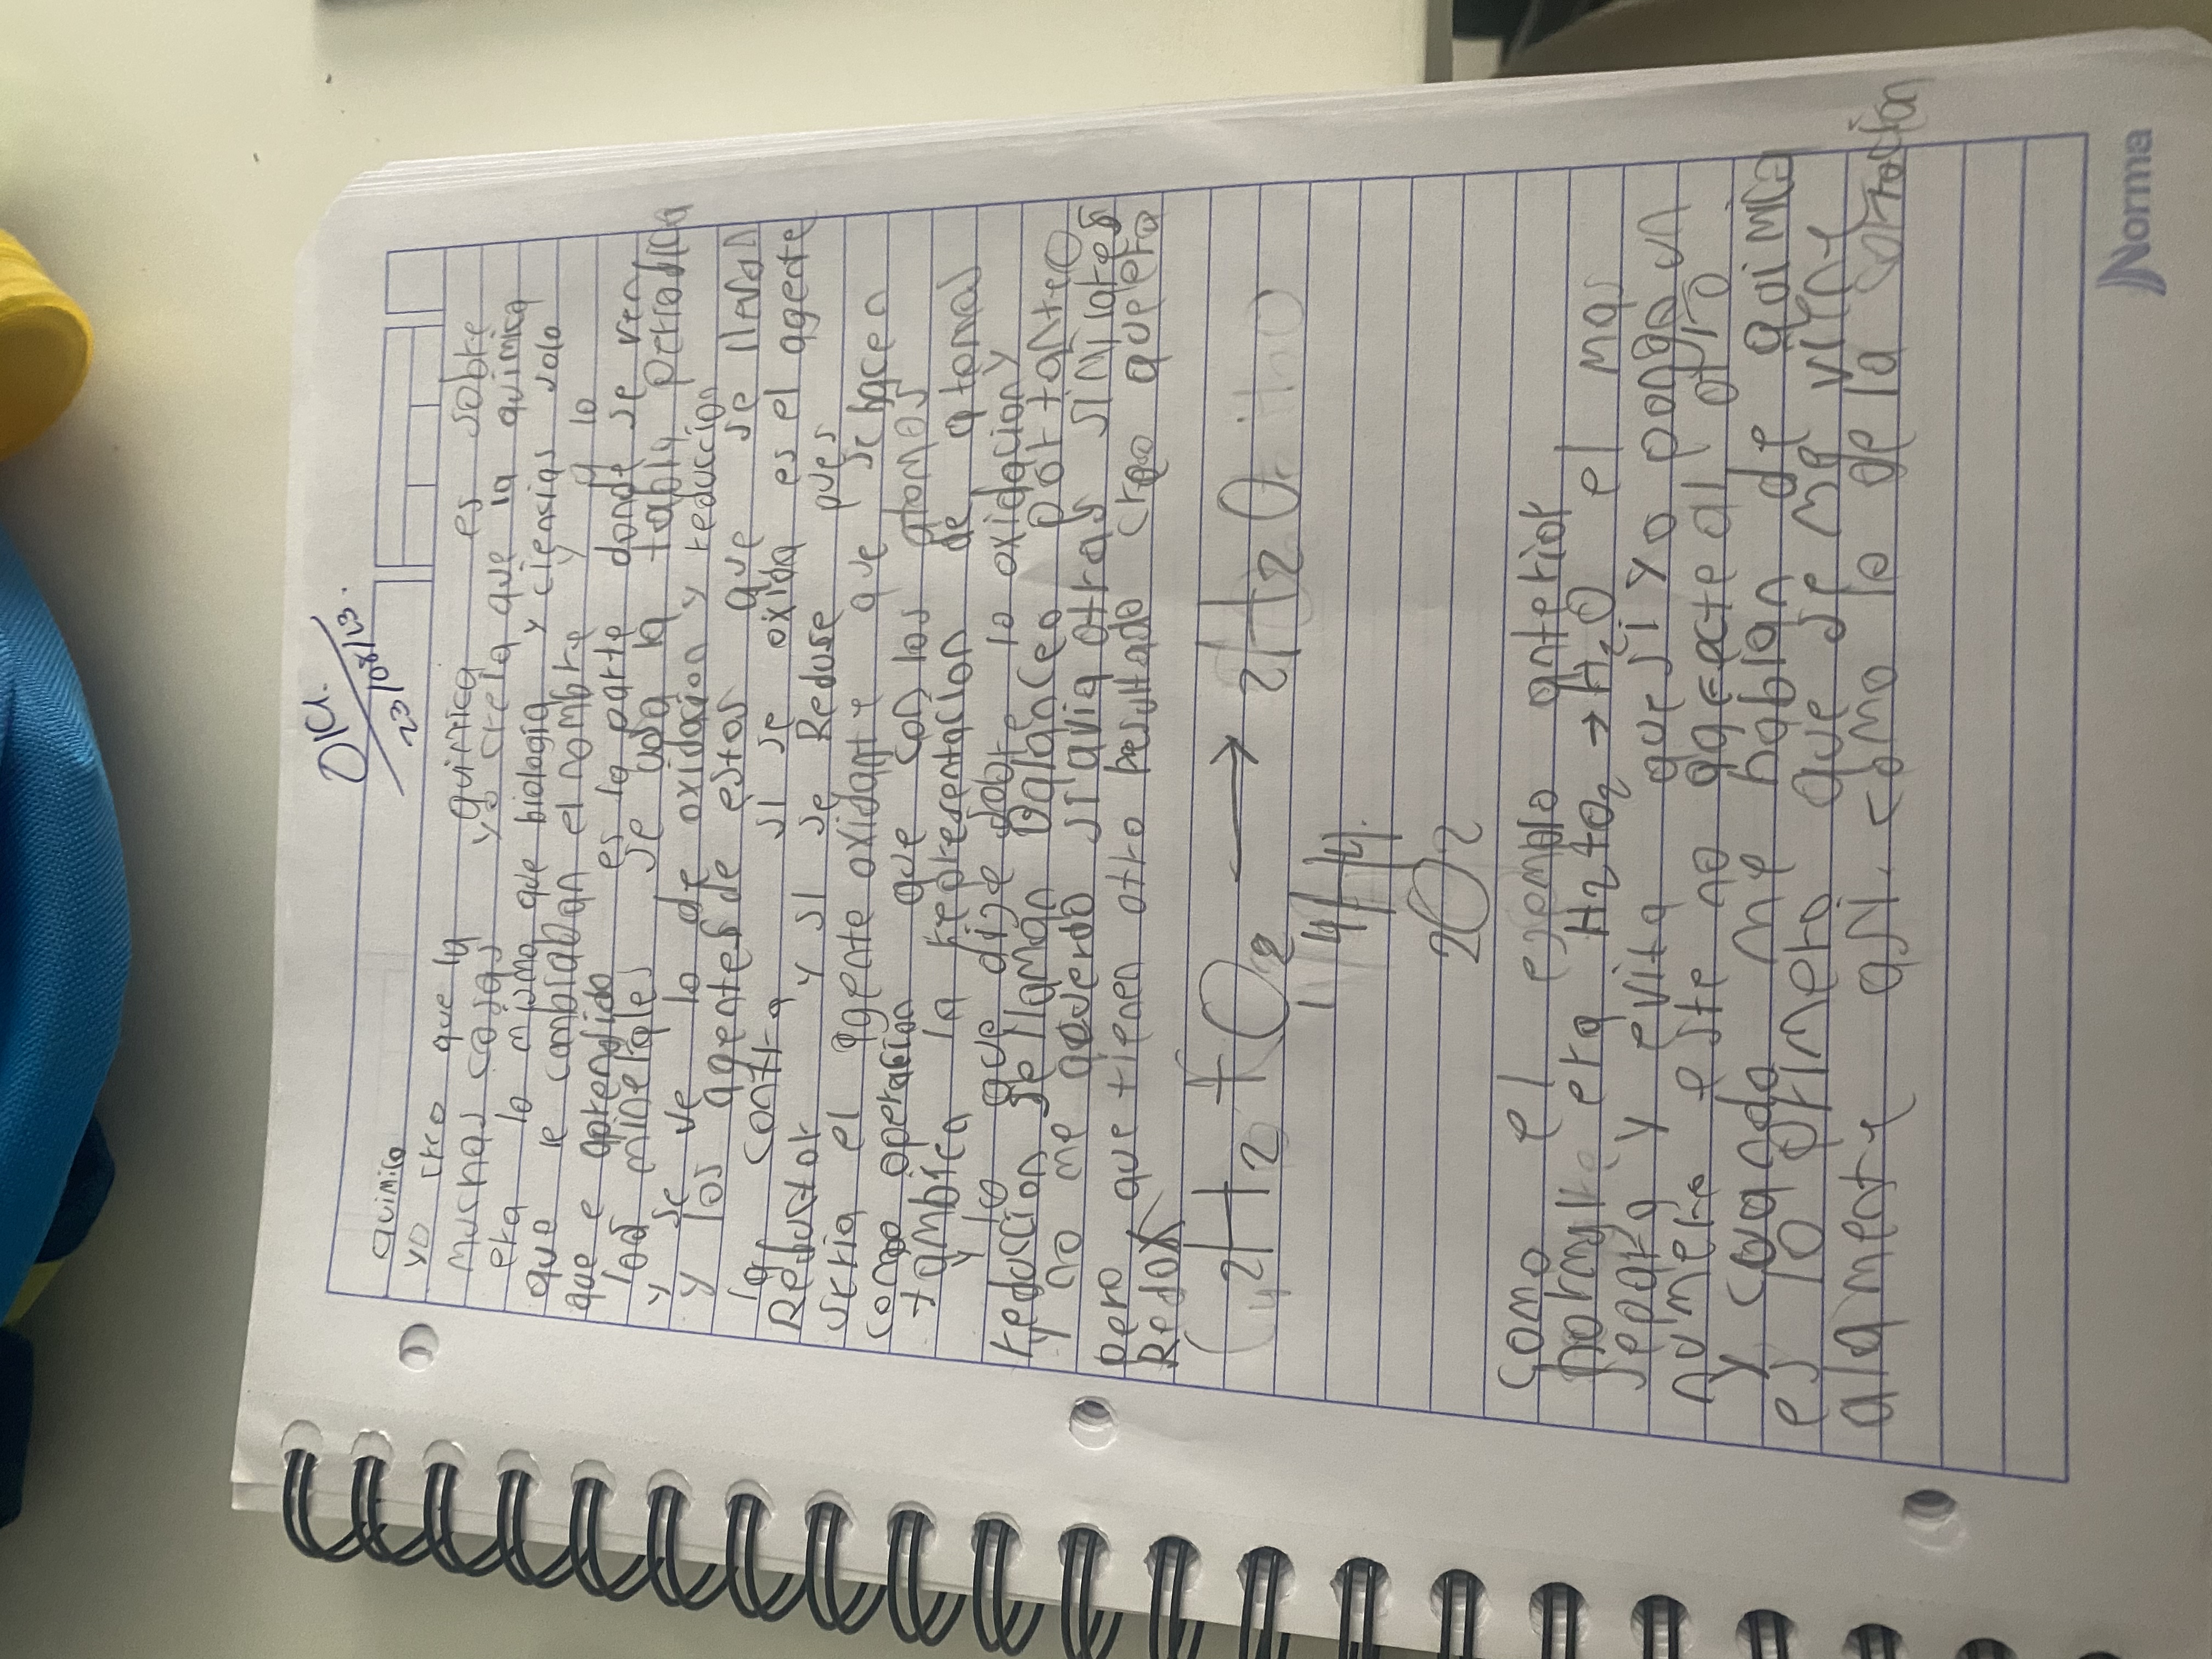 DICI.
23/08/23.
quimica
yo creo que la quimica es sobre
muchas cosas y yo creia que la quimica
era lo mismo que biologia y ciencias solo
que le cambiaban el nombre y y lo
que e aprendido es la parte donde se ven
los minerales se usa la tabla periodica
y se ve lo de oxidacion y reduccion
y los agentes de estos que se llevan
la contra si se oxida es el agente
Redustor y si se Reduse pues
seria el agente oxidante que se hacen
como operacion que son los atomos
tambien la representacion de atomas
y lo que dije sobre lo oxidacion y
Reduscion se llaman Balanceo por tanteo
no me acuerdo si avia otras similares
pero que tienen otro resultado creo que era
Redox
2H2 + O2 → 2H2O
4/4/
2O2
como el ejemplo anterior
porque era H2+O2 → H2O el mas
separa y evita que si yo pongo un
numero este no afecte al otro
y cuando me hablan de quimica
es lo primero que se me viene
ala mente así como lo de la corrosion
Norma